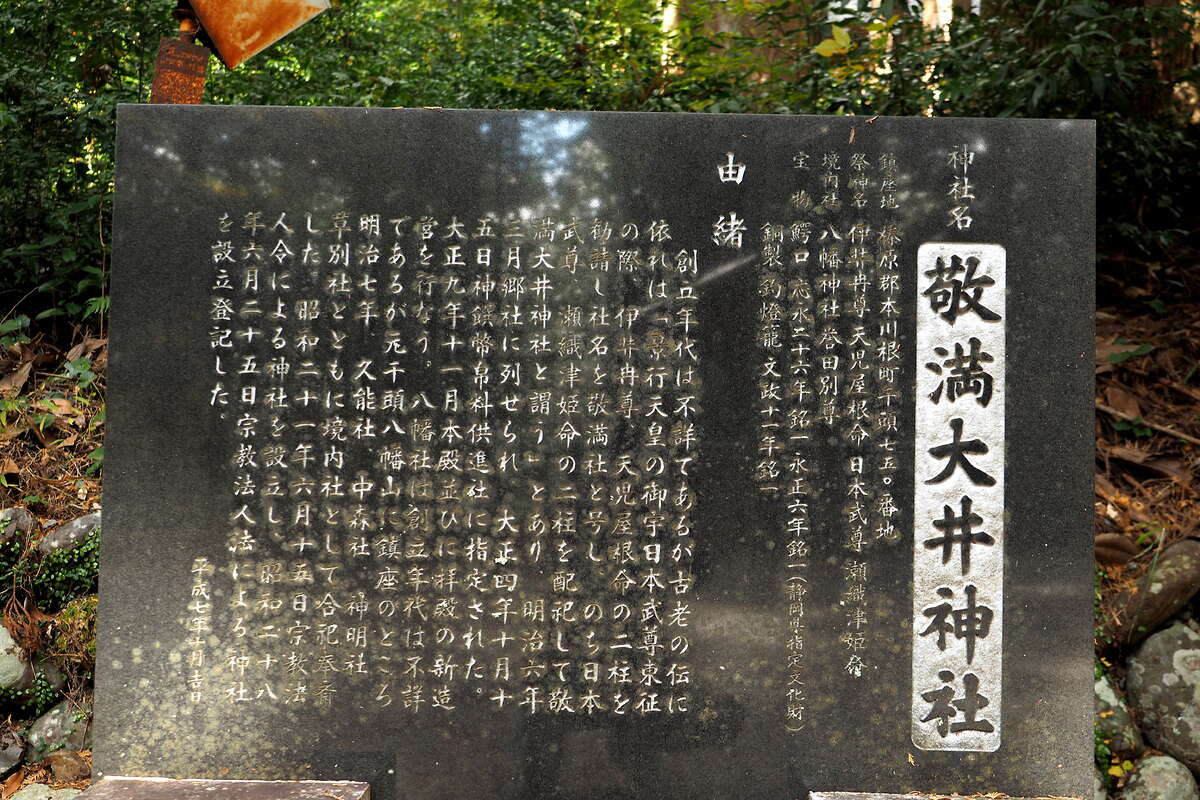 神社名 敬満大井神社
鎮座地 榛原郡本川根町千頭七五〇番地
祭神名 伊弉冉尊 天児屋根命 日本武尊 瀬織津姫命
境内社 八幡神社 巻田別尊
宝物 鰐口 応永二十六年銘一 永正六年銘一(静岡県指定文化財)
銅製釣燈籠 文政十一年銘一
由緒
創立年代は不詳であるが古老の伝に
依れは「景行天皇の御宇日本武尊東征
の際、伊弉冉尊、天児屋根命の二柱を
勧請し社名を敬満社と号し、のち日本
武尊、瀬織津姫命の二柱を配祀して敬
満大井神社と謂う」とあり、明治六年
三月郷社に列せられ、大正四年十月十
五日神饌幣帛料供進社に指定された。
大正九年十一月本殿並ひに拝殿の新造
営を行なう。八幡社は創立年代は不詳
であるが元千頭八幡山に鎮座のところ
明治七年、久能社、中森社、神明社
草別社とともに境内社として合祀奉斎
した。昭和二十一年六月十五日宗教法
人令による神社を設立し、昭和二十八
年六月二十五日宗教法人法による神社
を設立登記した。
平成七年十月吉日